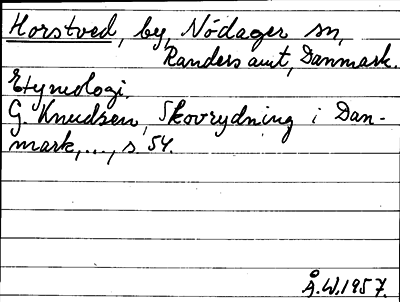 Horstved, by, Nödager sn,
Randers amt, Danmark.
Etymologi.
G. Knudsen, Skovrydning i Dan-
mark,..., s 54.
Å.W.1957.